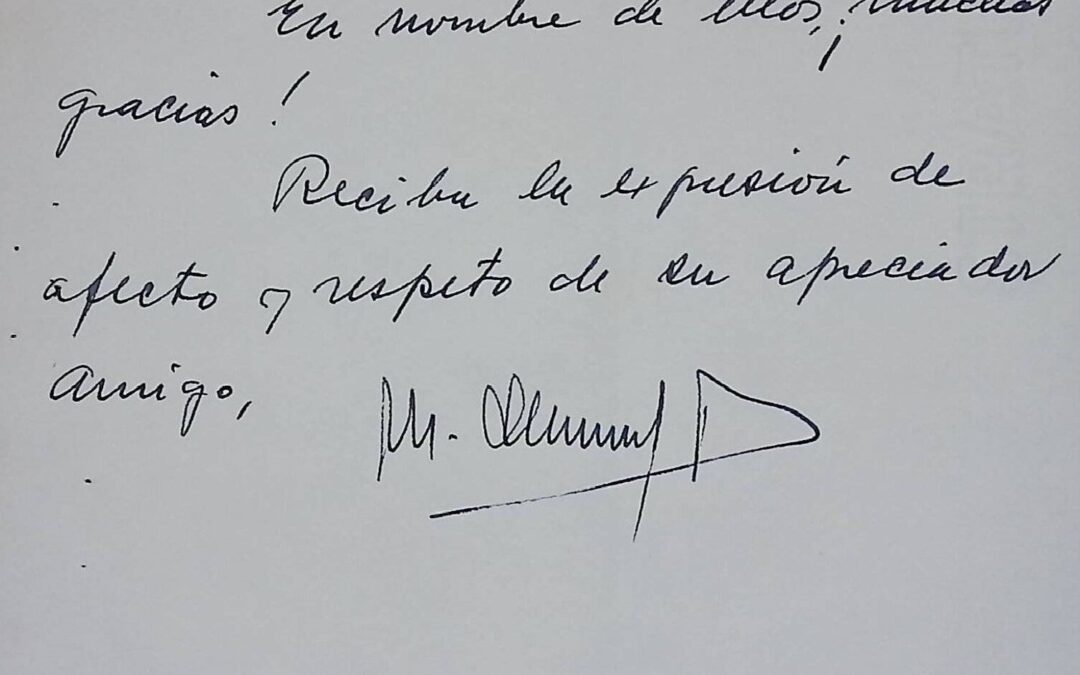 En nombre de ellos, ¡muchas
gracias!
Reciba la expresión de
afecto y respeto de su apreciador
amigo,
M.